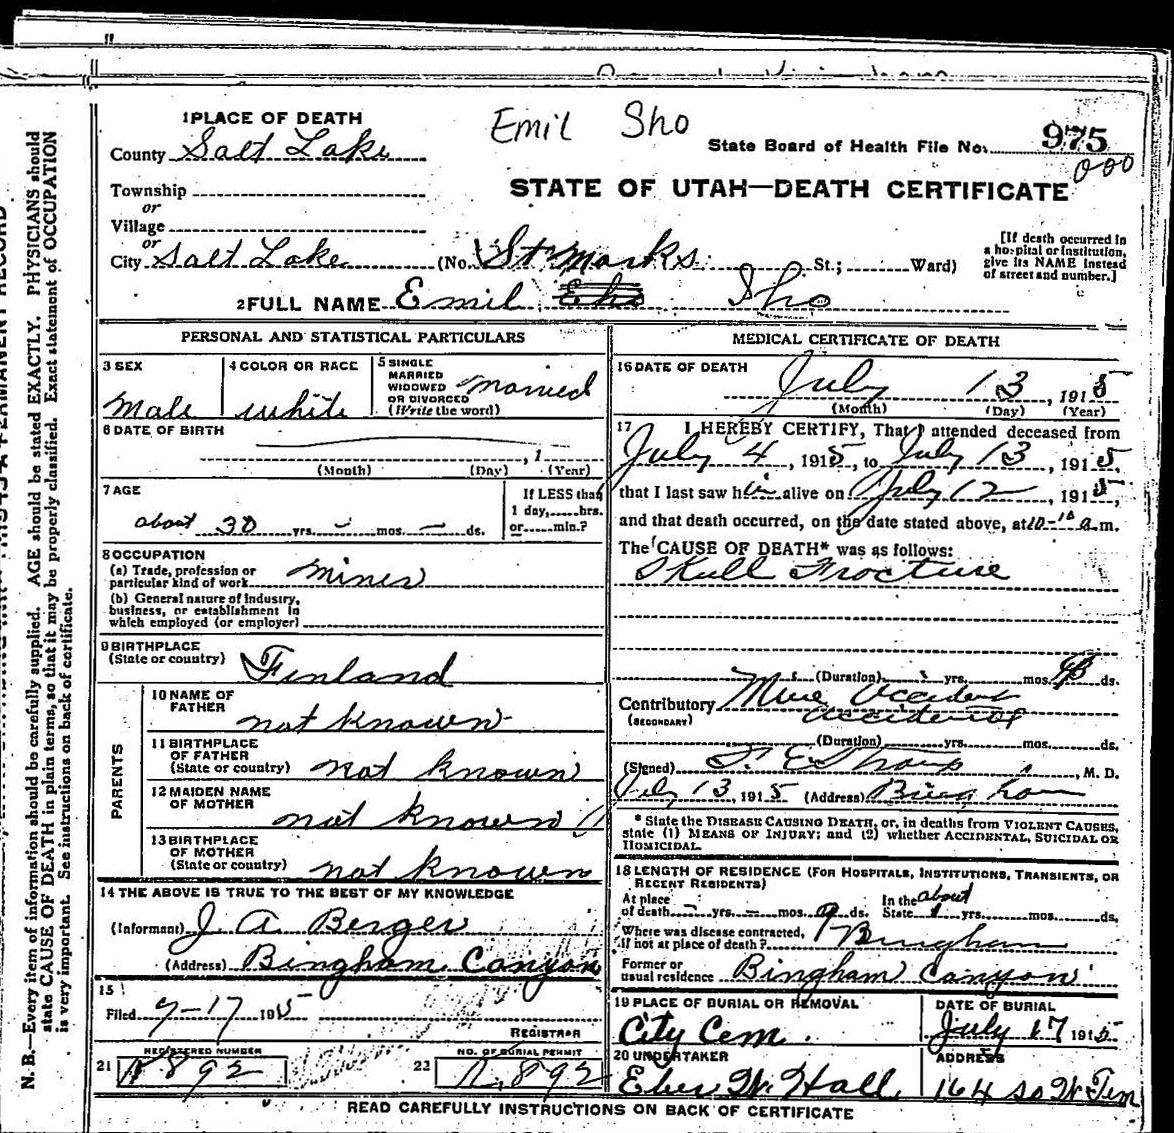 Emil Sho
1 PLACE OF DEATH
County Salt Lake
State Board of Health File No. 975
000
Township
or
STATE OF UTAH—DEATH CERTIFICATE
Village
or
City Salt Lake (No. St Marks St.; Ward)
[If death occurred in a hospital or institution, give its NAME instead of street and number.]
2 FULL NAME Emil Sho
PERSONAL AND STATISTICAL PARTICULARS
3 SEX
Male
4 COLOR OR RACE
white
5 SINGLE MARRIED WIDOWED OR DIVORCED (Write the word)
Married
6 DATE OF BIRTH
, 1
(Month) (Day) (Year)
7 AGE
about 30 yrs. mos. ds.
If LESS than 1 day, hrs. or min.?
8 OCCUPATION
(a) Trade, profession or particular kind of work Miner
(b) General nature of industry, business, or establishment in which employed (or employer)
9 BIRTHPLACE
(State or country) Finland
PARENTS
10 NAME OF FATHER not known
11 BIRTHPLACE OF FATHER (State or country) not known
12 MAIDEN NAME OF MOTHER not known
13 BIRTHPLACE OF MOTHER (State or country) not known
14 THE ABOVE IS TRUE TO THE BEST OF MY KNOWLEDGE
(Informant) J. A. Berger
(Address) Bingham Canyon
15
Filed 7-17 1915
REGISTRAR
REGISTERED NUMBER
21 N892
NO. OF BURIAL PERMIT
22 N.892
MEDICAL CERTIFICATE OF DEATH
16 DATE OF DEATH
July 13, 1915
(Month) (Day) (Year)
17 I HEREBY CERTIFY, That I attended deceased from
July 4, 1915, to July 13, 1915,
that I last saw him alive on July 12, 1915,
and that death occurred, on the date stated above, at 10-10 a.m.
The CAUSE OF DEATH* was as follows:
Skull Fracture
(Duration) yrs. mos. ds.
Contributory Mine Accident
(SECONDARY) Accidental
(Duration) yrs. mos. ds.
(Signed) , M. D.
July 13, 1915 (Address) Bingham
* State the DISEASE CAUSING DEATH, or, in deaths from VIOLENT CAUSES, state (1) MEANS OF INJURY; and (2) whether ACCIDENTAL, SUICIDAL OR HOMICIDAL.
18 LENGTH OF RESIDENCE (FOR HOSPITALS, INSTITUTIONS, TRANSIENTS, OR RECENT RESIDENTS)
At place of death yrs. mos. 9 ds. In the State about 1 yrs. mos. ds.
Where was disease contracted, if not at place of death? Bingham
Former or usual residence Bingham Canyon
19 PLACE OF BURIAL OR REMOVAL
City Cem.
DATE OF BURIAL
July 17 1915
20 UNDERTAKER
Eber W. Hall
ADDRESS
164 So W Tem
READ CAREFULLY INSTRUCTIONS ON BACK OF CERTIFICATE
N. B.—Every item of information should be carefully supplied. AGE should be stated EXACTLY. PHYSICIANS should
state CAUSE OF DEATH in plain terms, so that it may be properly classified. Exact statement of OCCUPATION
is very important. See instructions on back of certificate.